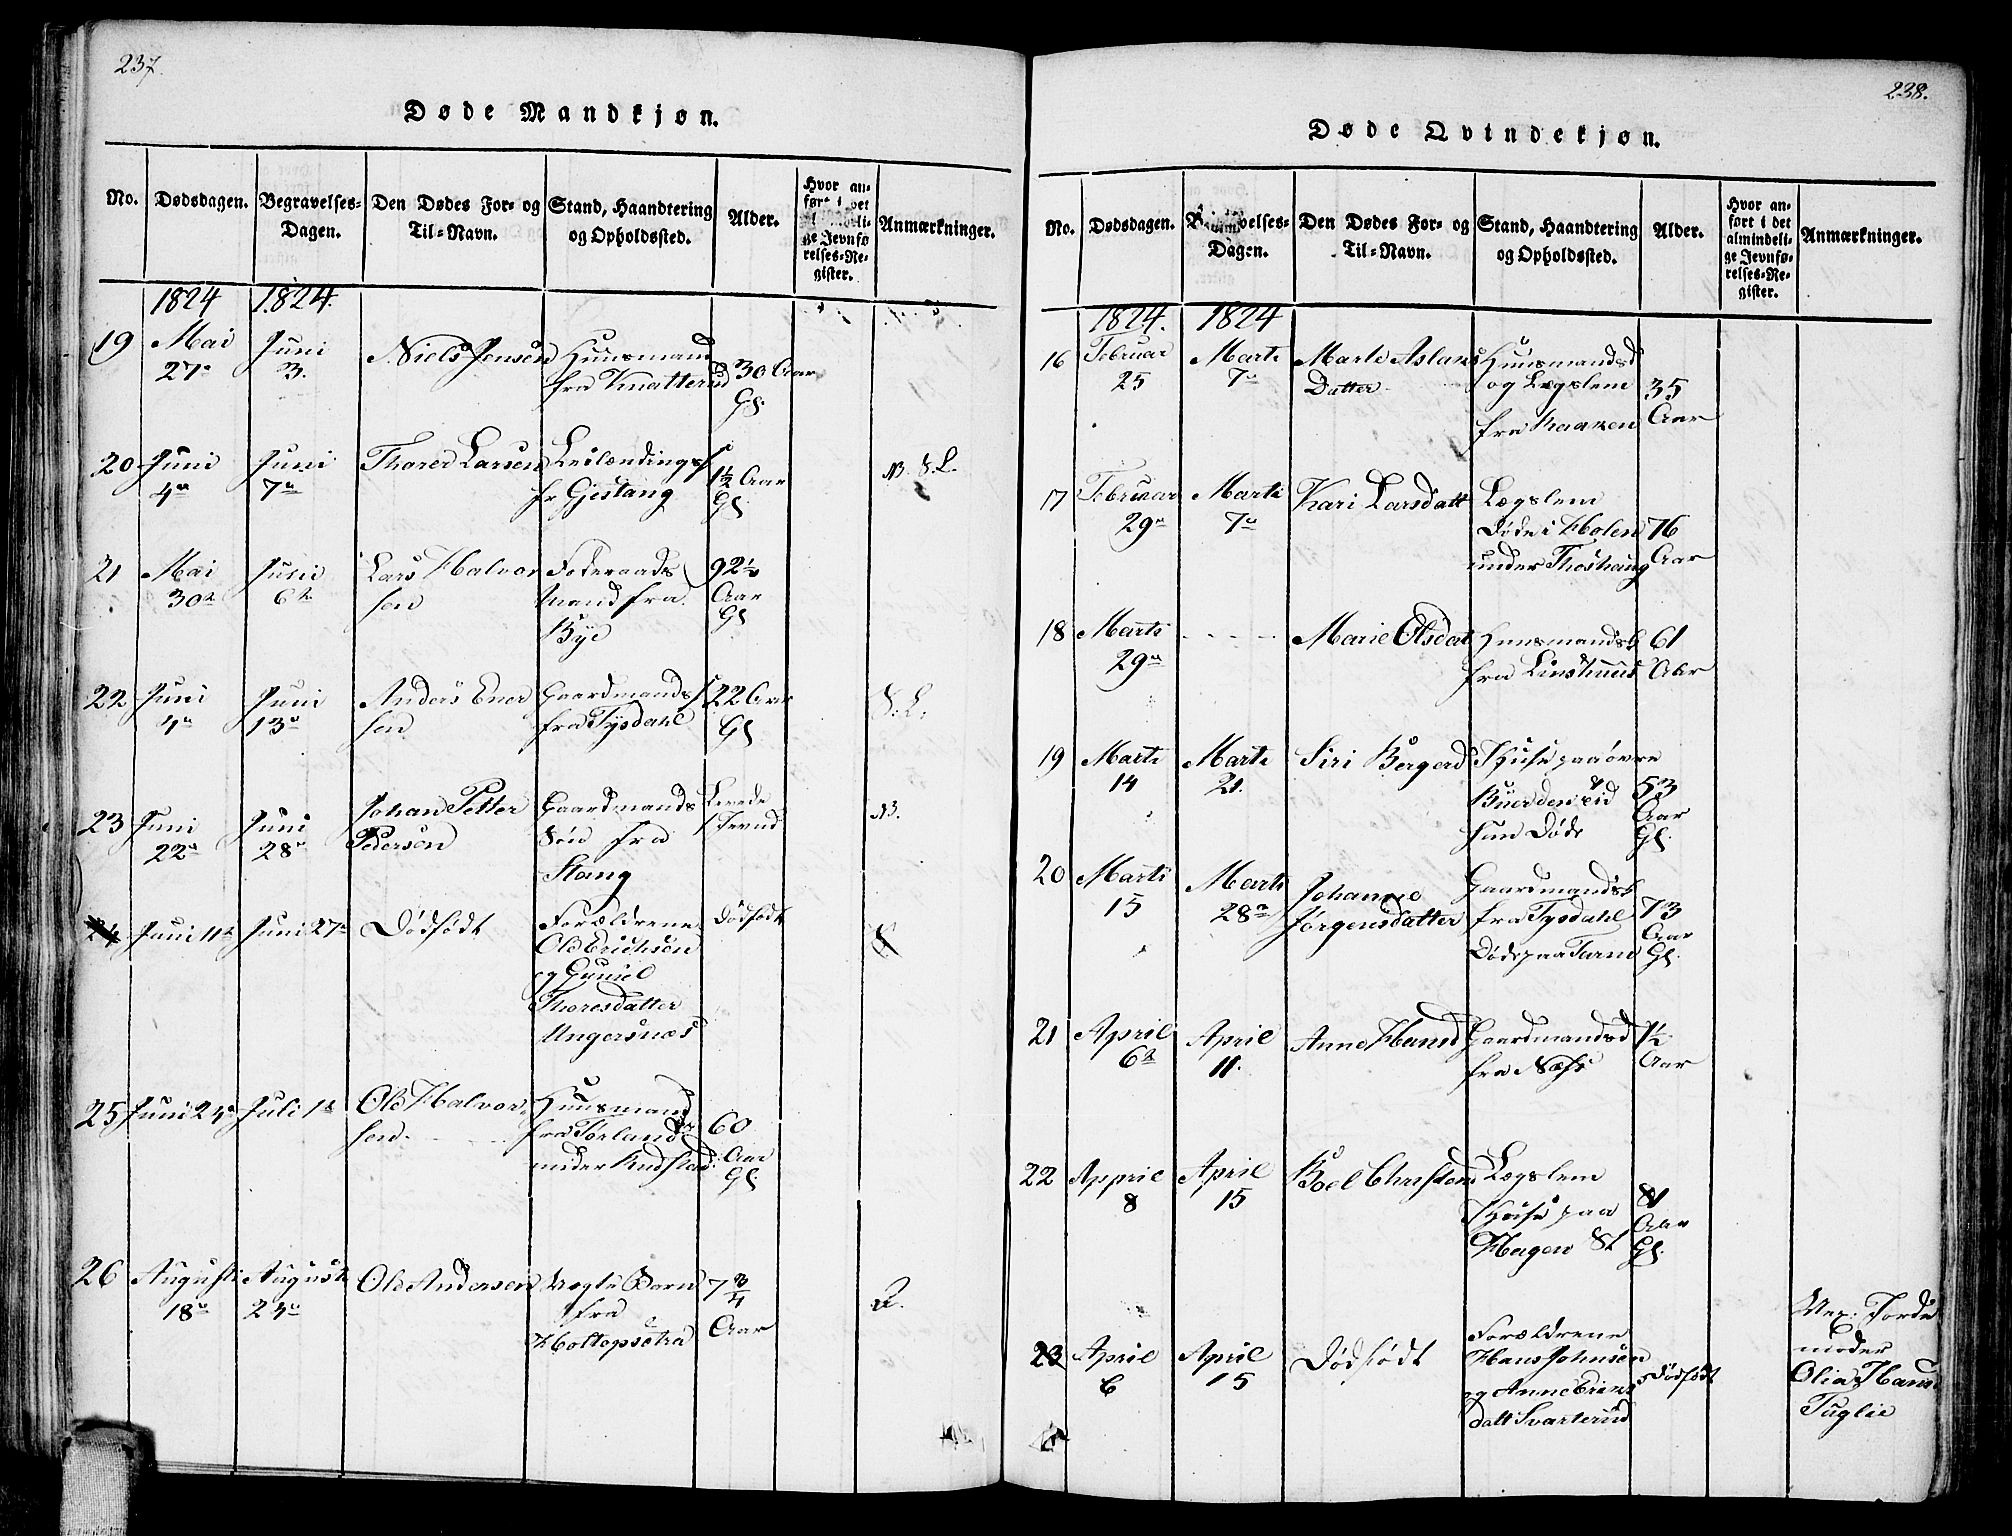 237.
Døde Mandkjøn.
No. Dødsdagen. Begravelses-Dagen. Den Dødes For- og Til-Navn. Stand, Haandtering og Opholdssted. Alder. Hvor anført i det almindelige Jevnførelses-Register. Anmærkninger.
1824 1824.
19 Mai 27 Juni 3. Niels Jensen Huusmand fra Knatterud 30 Aar Gl.
20 Juni 4 Juni 7 Thorer Larsen Leilændings fr Gjestang 1½ Aar Gl NB. S.L.
21 Mai 30 Juni 6 Lars Halvorsen Foderaads Mand fra Bye 92½ Aar Gl
22 Juni 4 Juni 13 Anders Enersen Gaardmands fra Tysdahl 22 Aar Gl S.L.
23 Juni 22 Juni 28 Johan Petter Pedersen Gaardmands Søn fra Stang Levede NB.
24 Juni 11 Juni 27 Dødfødt Forældrene Ole Erichsen og Guniel Thoresdatter Ungersnæs Dødfødt
25 Juni 24 Juli 1 Ole Halvorsen Huusmand fra Tørland under Rudstad 60 Aar Gl
26 Augusti 18 August 24 Ole Andersen Barn fra Holtopsetra 7¾ Aar
238.
Døde Qvindekjøn.
No. Dødsdagen. Begravelses-Dagen. Den Dødes For- og Til-Navn. Stand, Haandtering og Opholdssted. Alder. Hvor anført i det almindelige Jevnførelses-Register. Anmærkninger.
1824. 1824
16 Februar 25 Marti 7 Marte Aslans Datter Huusmandsd og Lægslem fra Kaaken 35 Aar
17 Februar 29 Marti 7 Kari Larsdatt Lægslem Døde i Holen under Thoshaug 76 Aar
18 Marti 29 Marie Olsdat Huusmands fra Linshuus 61 Aar
19 Marti 14 Marti 21. Siri Bergerd paa øvre hun Døde 53 Aar Gl.
20 Marti 15 Marti 28 Johanne Jørgensdatter Gaardmands fra Tysdahl Døde paa 73 Aar Gl.
21 April 6 April 11. Anne Hansd Gaardmandsd fra Næss ½ Aar
22 Appril 8 April 15 Boel Christend Lægslem paa Hagen 81 Aar Gl.
23 April 6 April 15 Dødfødt Forældrene Hans Johnsen og Anne datt Svarterud Dødfødt Jorde moder Olia Hans Tuglie